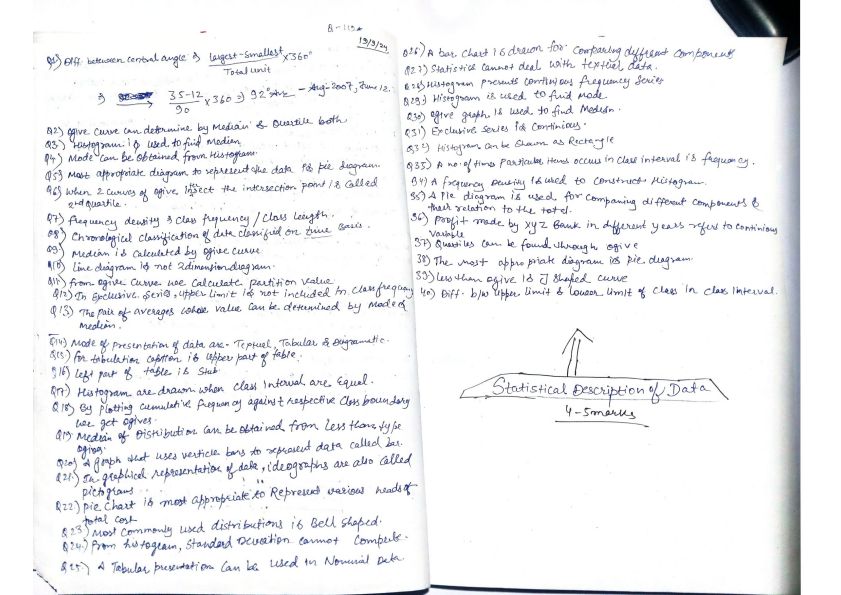 Q-119*
19/3/24
Q1) Diff. between central angle ⇒ largest-smallest/Total unit x360°
⇒ 35-12/90 x360 ⇒ 92° - Aug-2007, June 12.
Q2) Ogive Curve can determine by Median & Quartile both
Q3) Histogram is used to find Median
Q4) Mode can be obtained from Histogram.
Q5) Most appropriate diagram to represent the data is pie diagram.
Q6) When 2 curves of ogive intersect the intersection point is called
2nd quartile.
Q7) Frequency density ⇒ class frequency / class length.
Q8) Chronological classification of data classified on time basis.
Q9) Median is calculated by ogive curve
Q10) Line diagram is not 2 dimension diagram.
Q11) from ogive Curve we calculate partition value
Q12) In Exclusive Series, upper limit is not included in class frequency
Q13) The pair of averages whose value can be determined by Mode &
median.
Q14) Mode of presentation of data are- Textual, Tabular & Diagramatic.
Q15) for tabulation caption is upper part of table.
Q16) left part of table is Stub
Q17) Histogram are drawn when class Interval are Equal.
Q18) By plotting cumulative frequency against respective class boundary
we get ogives.
Q19) Median of Distribution can be obtained from less than type
ogives.
Q20) A graph that uses verticle bars to represent data called bar.
Q21) In graphical representation of data, ideographs are also called
pictograms
Q22) pie chart is most appropriate to Represent various heads of
total cost
Q23) Most commonly used distributions is Bell shaped.
Q24) from histogram, Standard Deviation cannot compute.
Q25) A Tabular presentation can be used in Nominal Data.
Q26) A bar chart is drawn for comparing different components
Q27) Statistics cannot deal with textual data.
Q28) Histogram presents continuous frequency series
Q29) Histogram is used to find mode
Q30) ogive graph is used to find Median.
Q31) Exclusive series is continious.
Q32) Histogram can be shown as Rectangle
Q33) A no. of times particular items occurs in class interval is frequency.
34) A frequency density is used to construct Histogram.
35) A Pie diagram is used for comparing different components &
their relation to the total.
36) Profit made by XYZ Bank in different years refers to continious
variable
37) Quartiles can be found through ogive
38) The most appropriate diagram is Pie diagram
39) less than ogive is J shaped curve
40) Diff. b/w upper limit & lower limit of class in class Interval.
Statistical Description of Data
4-5 marks